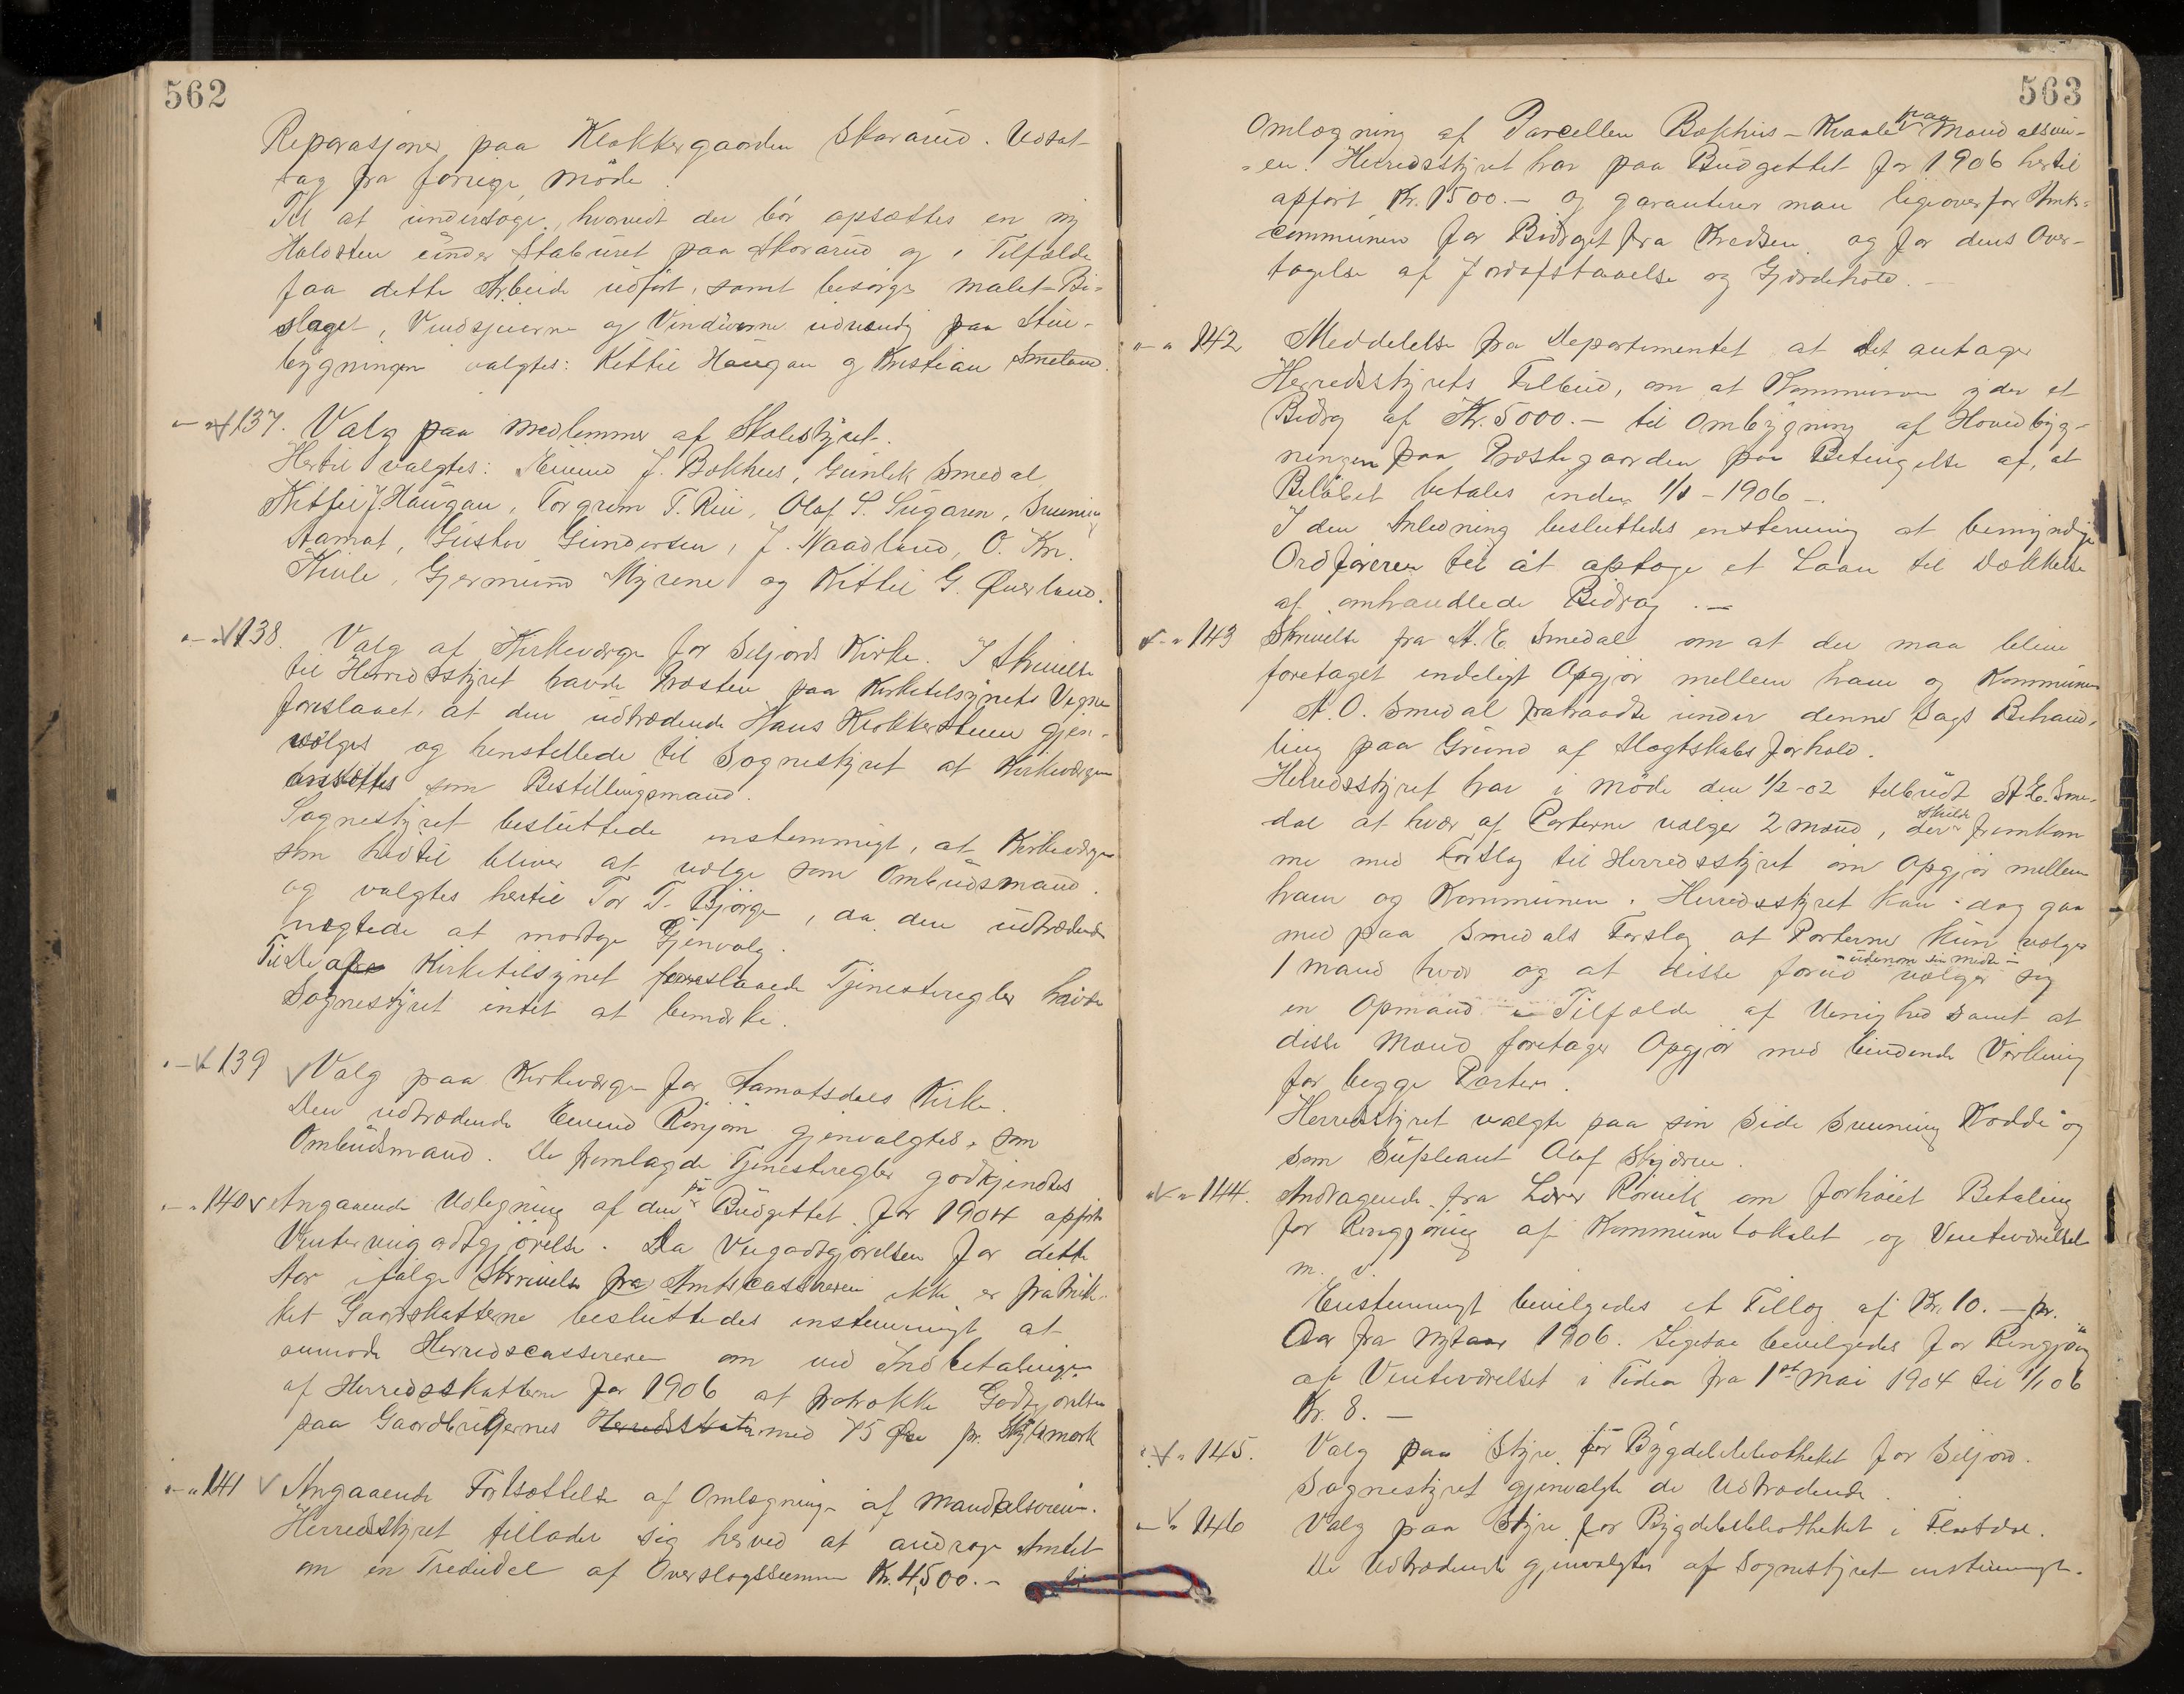 562
Reparasjoner paa Klokkergaarden Skorarud. Udsat
tag fra forrige möde.
Til at undersöge, hvorvidt der bör opsættes en ny
Holdsten under Staburet paa Skorarud og i Tilfælde
faa dette Arbeide udfört, samt besörge malet Bi-
slaget, Vindsjierne og Vinduerne udvendig paa Stue-
bygningen valgtes: Kittil Haugan og Kristian Smeland.
"-" 137. Valg paa medlemmer af Skolestyret.
Hertil valgtes: Eivind J. Bakhus, Gunlek Smedal,
Kittil J. Haugan, Torgrim T. Rui, Olaf S. Sugaren, Sveinung
Aamot, Gustav Gundersen, J. Naadland, O. Kn.
Kivle, Gjermund Myrene og Kittil G. Överland.
"-" 138. Valg af Kirkeværge for Seljord Kirke. I Skrivelse
til Herredsstyret havde Presten paa Kirketilsynets Vegne
foreslaaet, at den udtrædende Hans Klokkersteen gjen-
vælges og henstillede til Sognestyret at Kirkeværgen
ansættes som Bestillingsmand.
Sognestyret besluttede enstemmigt, at Kirkeværgen
som hidtil bliver at vælge som Ombudsmand.
og valgtes hertil Tor T. Björge, da den udtrædende
nægtede at modtage Gjenvalg.
Til de af Kirketilsynet foreslaaede Tjenesteregler havde
Sognestyret intet at bemærke.
"-" 139 Valg paa Kirkeværge for Aamotsdals Kirke.
Den udtrædende Eivind Rönjom gjenvalgtes som
Ombudsmand. De fremlagde Tjenesteregler godkjendtes
"-" 140 Angaaende Udligning af den på Budgettet for 1904 opförte
Vinterveigodtgjörelse. Da Veigodtgjörelsen for dette
Aar ifölge Skrivelse fra Amtscassereren ikke er fratruk-
ket Gaardskatterne besluttedes enstemmigt at
anmode Herredscassereren om ved Indbetalingen
af Herredsskatterne for 1906 at fratrække Godtgjörelsen
paa Gaardbrugernes Herredsskatter med 75 Öre pr. Skyldmark
"-" 141 Angaaende Fortsættelse af Omlægninge af Mandalsveien.
Herredsstyret tillader sig herved at andrage Amtet
om en Trediedel af Overslagssummen Kr. 4,500.- til
563
Omlægning af Parcellen Bakhus - Kvaale paa Mandalsvei-
en. Herredsstyret har paa Budgettet for 1906 hertil
opfört Kr. 1500.- og garanterer man ligeoverfor Amts-
communen for Bidraget fra Kredsen og for dens Over-
tagelse af Jordafstaaelse og Gjærdehold.-
"-" 142 Meddelelse fra Departementet at det antager
Herredsstyrets Tilbud, om at Kommunen yder et
Bidrag af Kr. 5000.- til Ombygning af Hovedbyg-
ningen paa Præstegaarden paa Betingelse af, at
Belöbet betales inden 1/8 - 1906 -.
I den Anledning besluttedes enstemmig at bemyndige
Ordföreren til at optage et Laan til Dækkelse
af omhandlede Bidrag.-
"-" 143 Skrivelse fra A. E. Smedal om at der maa blive
foretaget endeligt Opgjör mellem ham og Kommunen
A. O. Smedal fratraadte under denne Sags Behand-
ling paa Grund af Slægtskabsforhold.
Herredsstyret har i möde den 1/2-02 tilbudt A. E. Sme-
dal at hver af Parterne vælger 2 mænd, der skulde fremkom
me med Forslag til Herredsstyret om Opgjör mellem
ham og Kommunen. Herredsstyret kan idag gaa
med paa Smedals Forslag at Parterne kun vælger
1 mand hver og at disse forud - udenom sin midte - vælger sig
en Opmand i Tilfælde af Uenighed samt at
disse Mænd foretager Opgjör med bindende Virkning
for begge Parter.
Herredsstyret valgte paa sin Side Sveinung Nordde og
som Supleant Olaf Skjæren.
"-" 144. Andragende fra Lærer Rörvik om forhöiet Betaling
for Rengjöring af Kommunelokalet og Venteværelset
m. v.
Enstemmigt bevilgedes et Tillæg af Kr. 10.- pr.
Aar fra Nytaar 1906. Ligesaa bevilgedes for Rengjöring
af Venteværelset i Tiden fra 1st Mai 1904 til 1/1 06
Kr. 8.-
"-" 145. Valg paa Styre for Bygdebibliotheket for Seljord.
Sognestyret gjenvalgte de Udtrædende.
"-" 146 Valg paa Styre for Bygdebibliotheket i Flatdal.
De Udtrædende gjenvalgtes af Sognestyret enstemmigt.